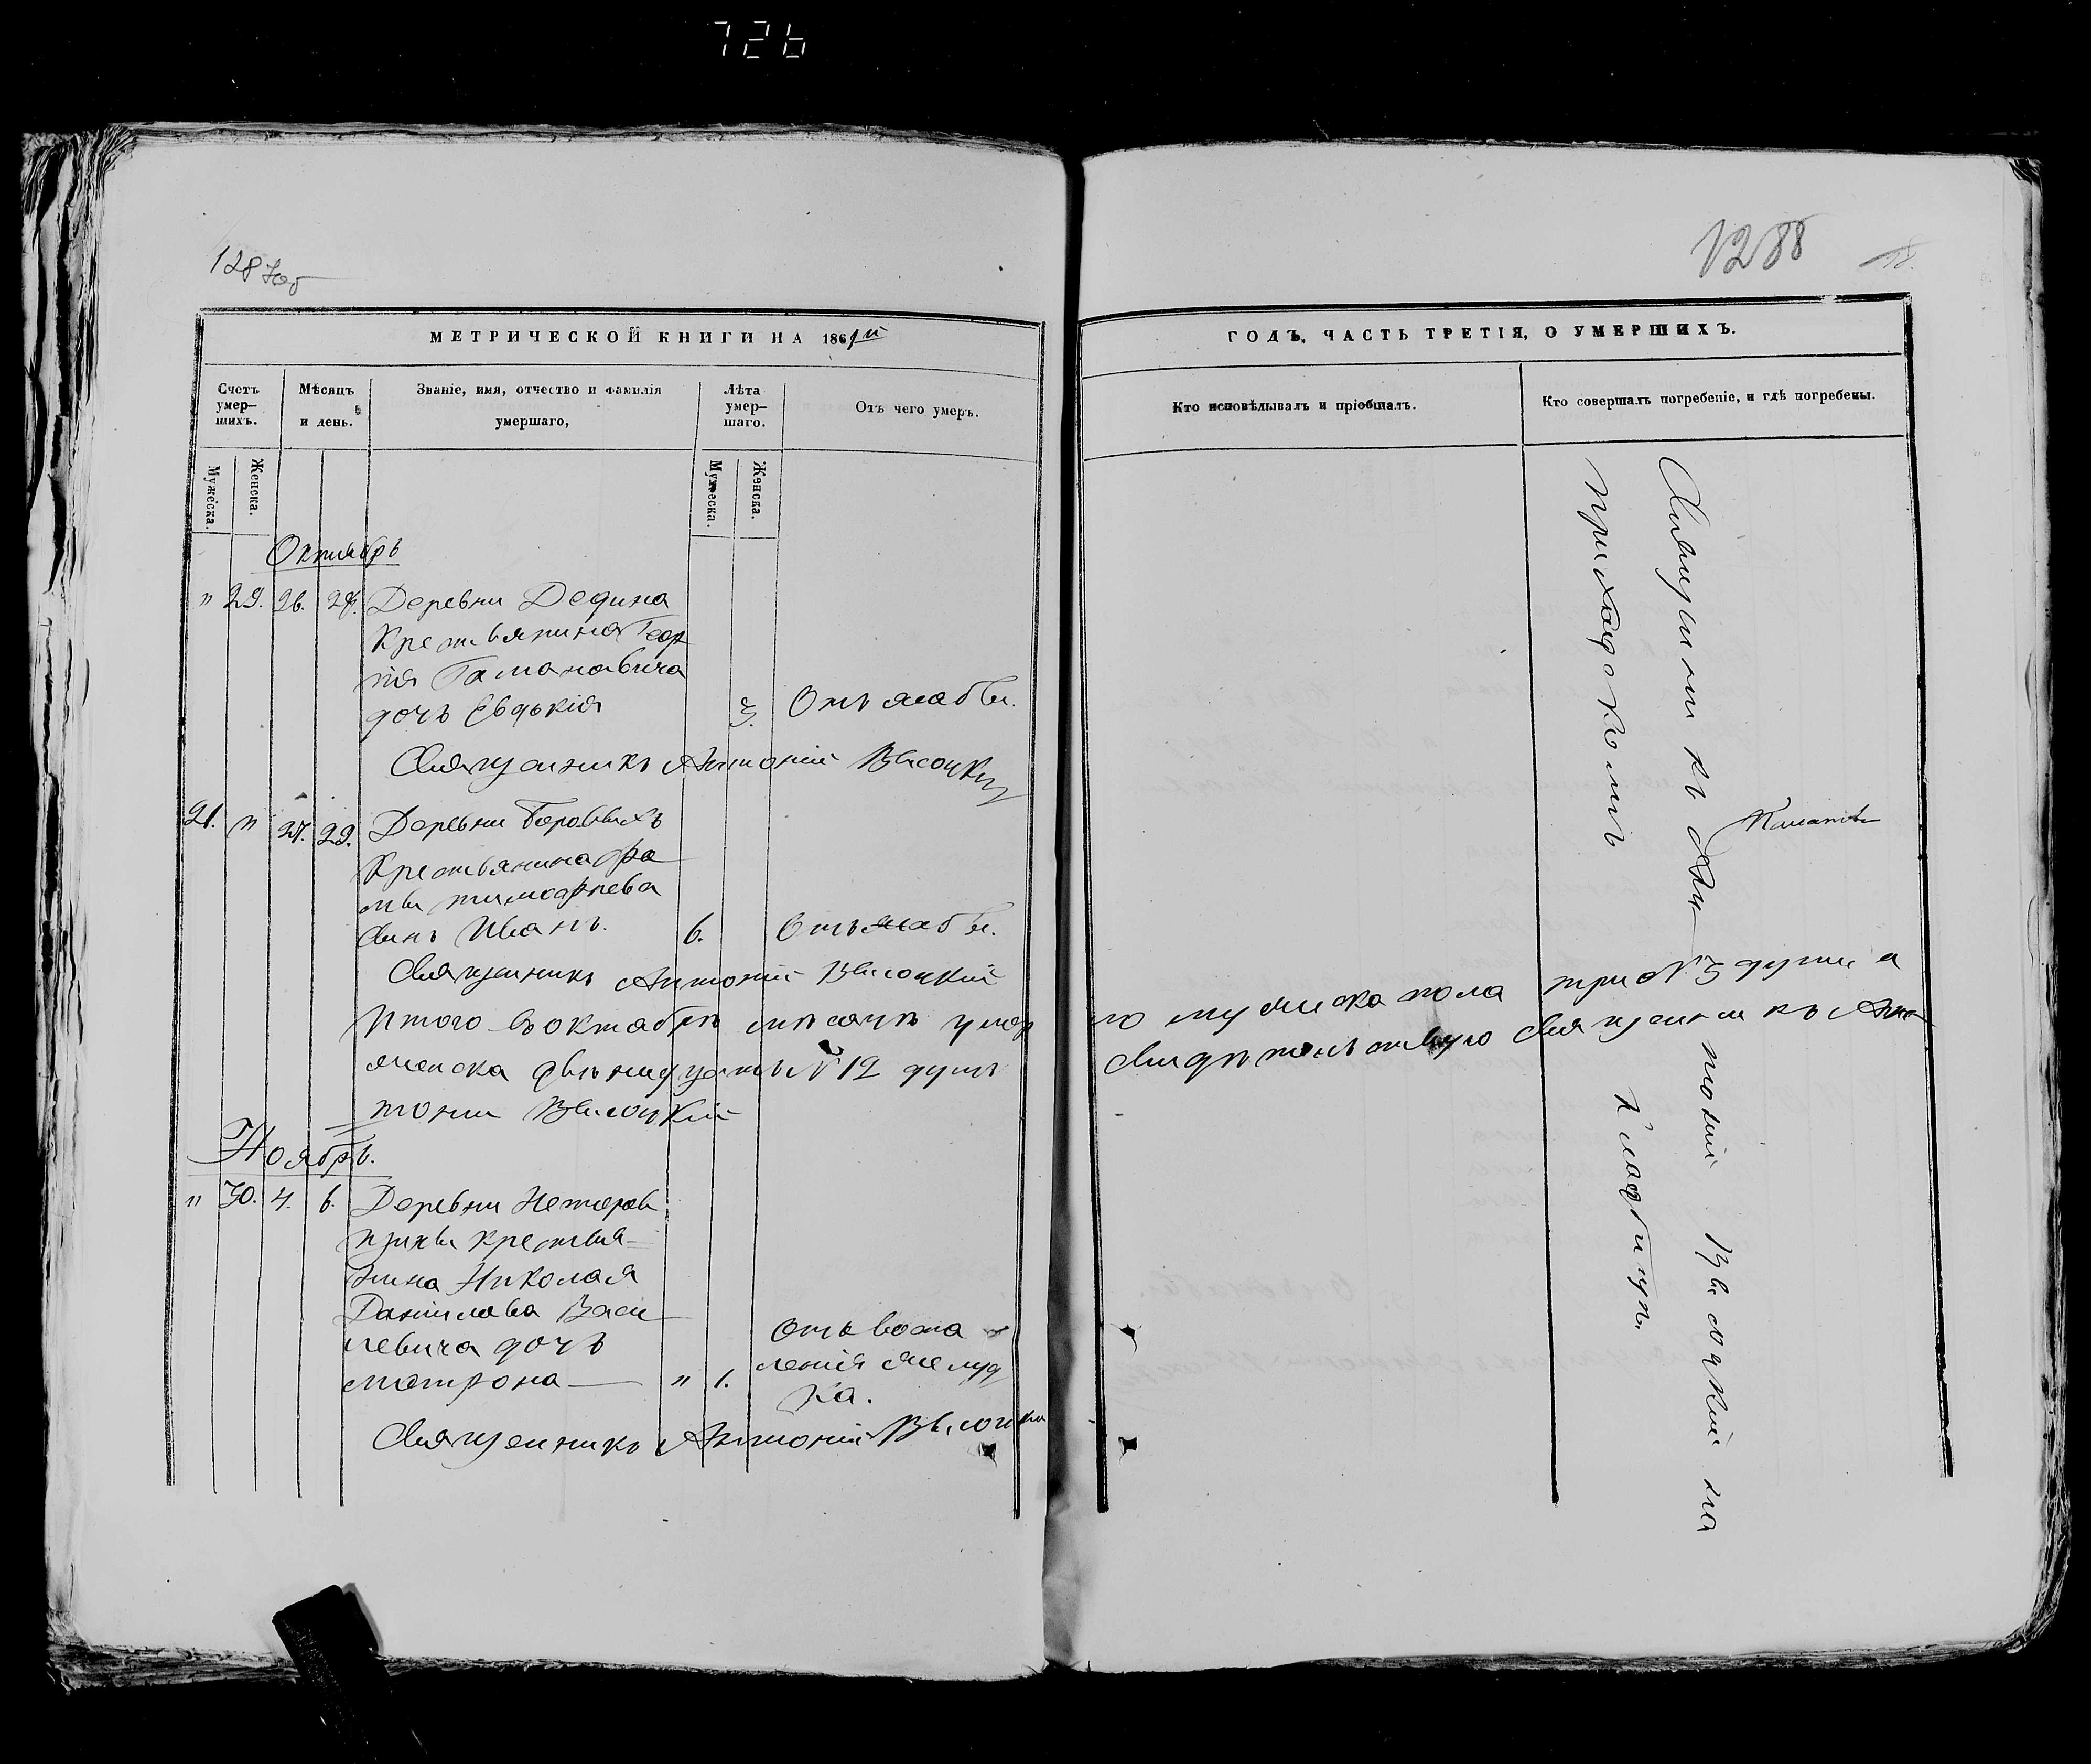 726
128 Ноб
1288
18.
МЕТРИЧЕСКОЙ КНИГИ НА 1869й
ГОДЪ, ЧАСТЬ ТРЕТІЯ, О УМЕРШИХЪ.
Счетъ умер-шихъ.
Мѣсяцъ и день.
Званіе, имя, отчество и фамилія умершаго,
Лѣта умер-шаго.
Отъ чего умеръ.
Кто исповѣдывалъ и пріобщалъ.
Кто совершалъ погребеніе, и гдѣ погребены.
Мужеска.
Женска.
Мужеска.
Женска.
Октябрь
" 29. 26. 28. Деревни Дедина
Крестьянина Геор
гія Гамановича
дочь Евдокія 3. Отъ жабы.
Священникъ Антоній Высоцкій
21. " 27. 29. Деревни Боровыхъ
Крестьянина Фо
мы Тимофеева
сынъ Иванъ. 6. Отъ жабы.
Священникъ Антоній Высоцкій
Итого въ октябрѣ мѣсяцѣ умер
ло мужеска пола три №3 души а
женска двѣнадцать №12 душъ
свидѣтельствую Священникъ Ан
тоній Высоцкій
Ноябрь.
" 30. 4. 6. Деревни
крестья-
нина Николая
Данилова Васи
левича дочь
Матрона " 1. Отъ воспа
ленія желуд
ка.
Священникъ Антоній Высоцкій
Священникъ Ан
тоній Высоцкій на
приходскомъ
кладбищѣ.